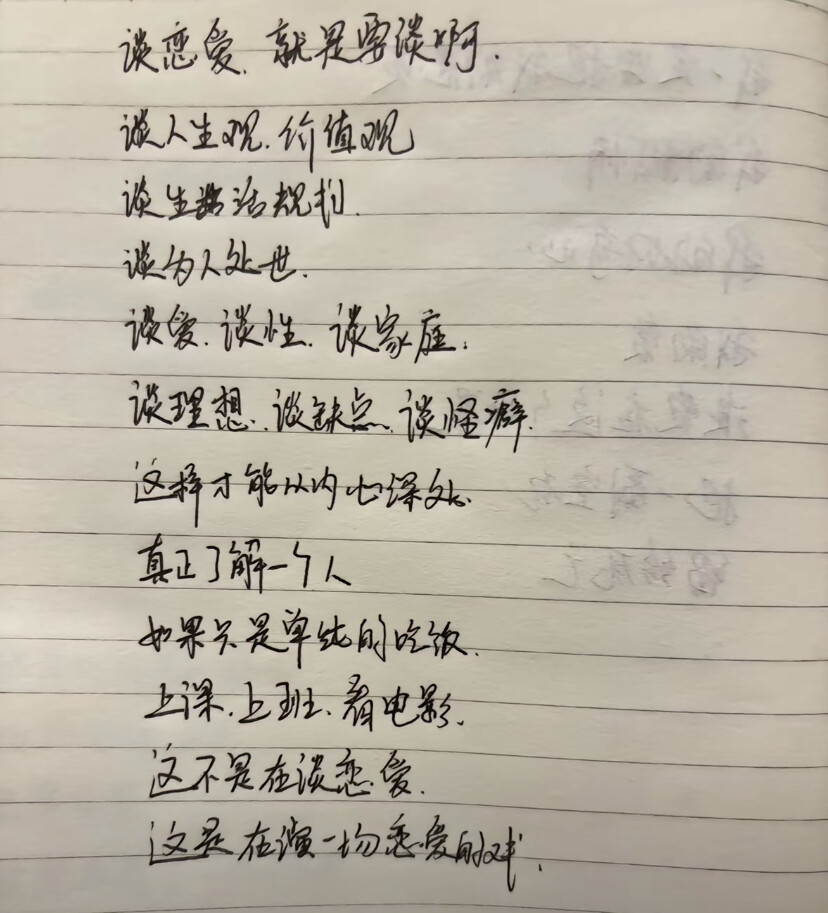 谈恋爱.就是要谈啊.
谈人生观.价值观
谈生活规划.
谈为人处世.
谈爱.谈性.谈家庭.
谈理想.谈缺点.谈怪癖.
这样才能从内心深处.
真正了解一个人
如果只是单纯的吃饭.
上课.上班.看电影.
这不是在谈恋爱.
这是在演一场恋爱的戏.